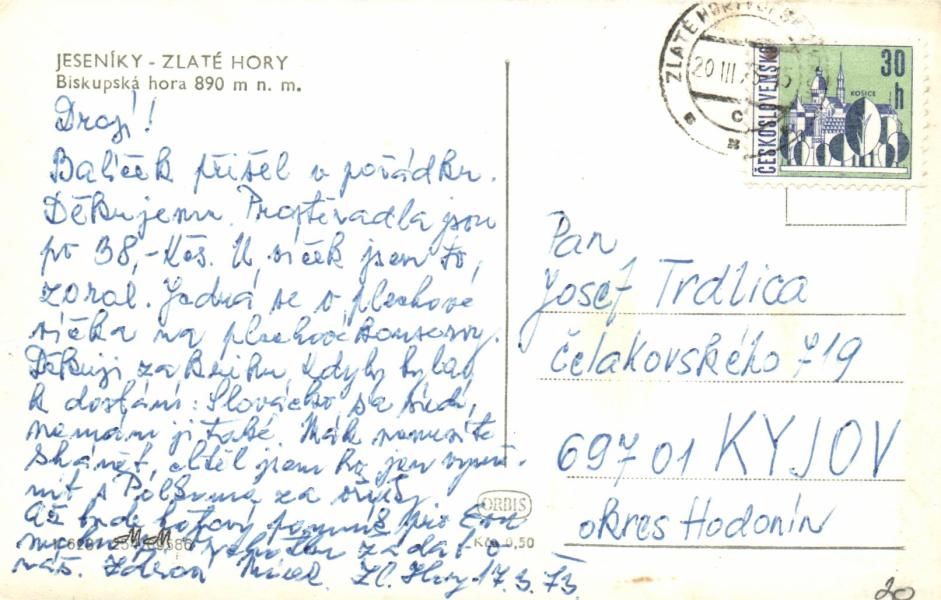 JESENÍKY - ZLATÉ HORY
Biskupská hora 890 m n. m.
Drazí!
Balíček přišel v pořádku.
Děkujeme. Prostěradla jsou
po 38,- Kčs. U víček jsem to
zoral. Jedná se o plechové
víčka na plechové konservy.
Děkuji za knihu, kdyby byla
k dostání: Slovácko sa súdí,
nemám ji také. Mák nemusíte
shánět, chtěl jsem ho jen vymě-
nit s Polskem za
Až bude hotový pomník pro
zadat o
nás. Zdraví Mirek. Zl. Hory 17.3.73
ORBIS
Kčs 0,50
ZLATÉ HORY
20 III
c
ČESKOSLOVENSKO
30 h
KOŠICE
Pan
Josef Trdlica
Čelakovského 719
69701 KYJOV
okres Hodonín
20